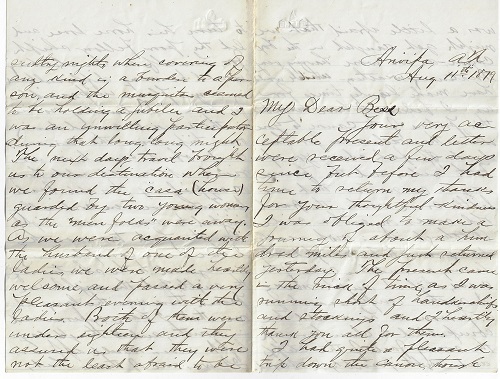 Arivipa A.T.
Aug 11th 1879
My Dear Bess
Your very ac
ceptable present and letter
were received a few days
since but before I had
time to return my thanks
for your thoughtful kindness
I was obliged to make a
journey of about a hun
dred miles and just returned
yesterday. The present came
in the nick of time, as I was
running short of handkerchiefs
and stockings and I heartily
thank you all for them.
I had quite a pleasant
trip down the canon,
sultry nights when covering of
any kind is a burden to a per
son, and the mosquitos seemed
to be holding a jubilee and I
was an unwilling participator
during that long long night
The next days travel brought
us to our destination when
we found the casa (house)
guarded by two young women
as the men folks were away.
As we were acquainted with
the husband of one of the
ladies we were made heartily
welcome, and passed a very
pleasant evening with the
ladies. Both of them were
under eighteen and they
assured us that they were
not the least afraid to be